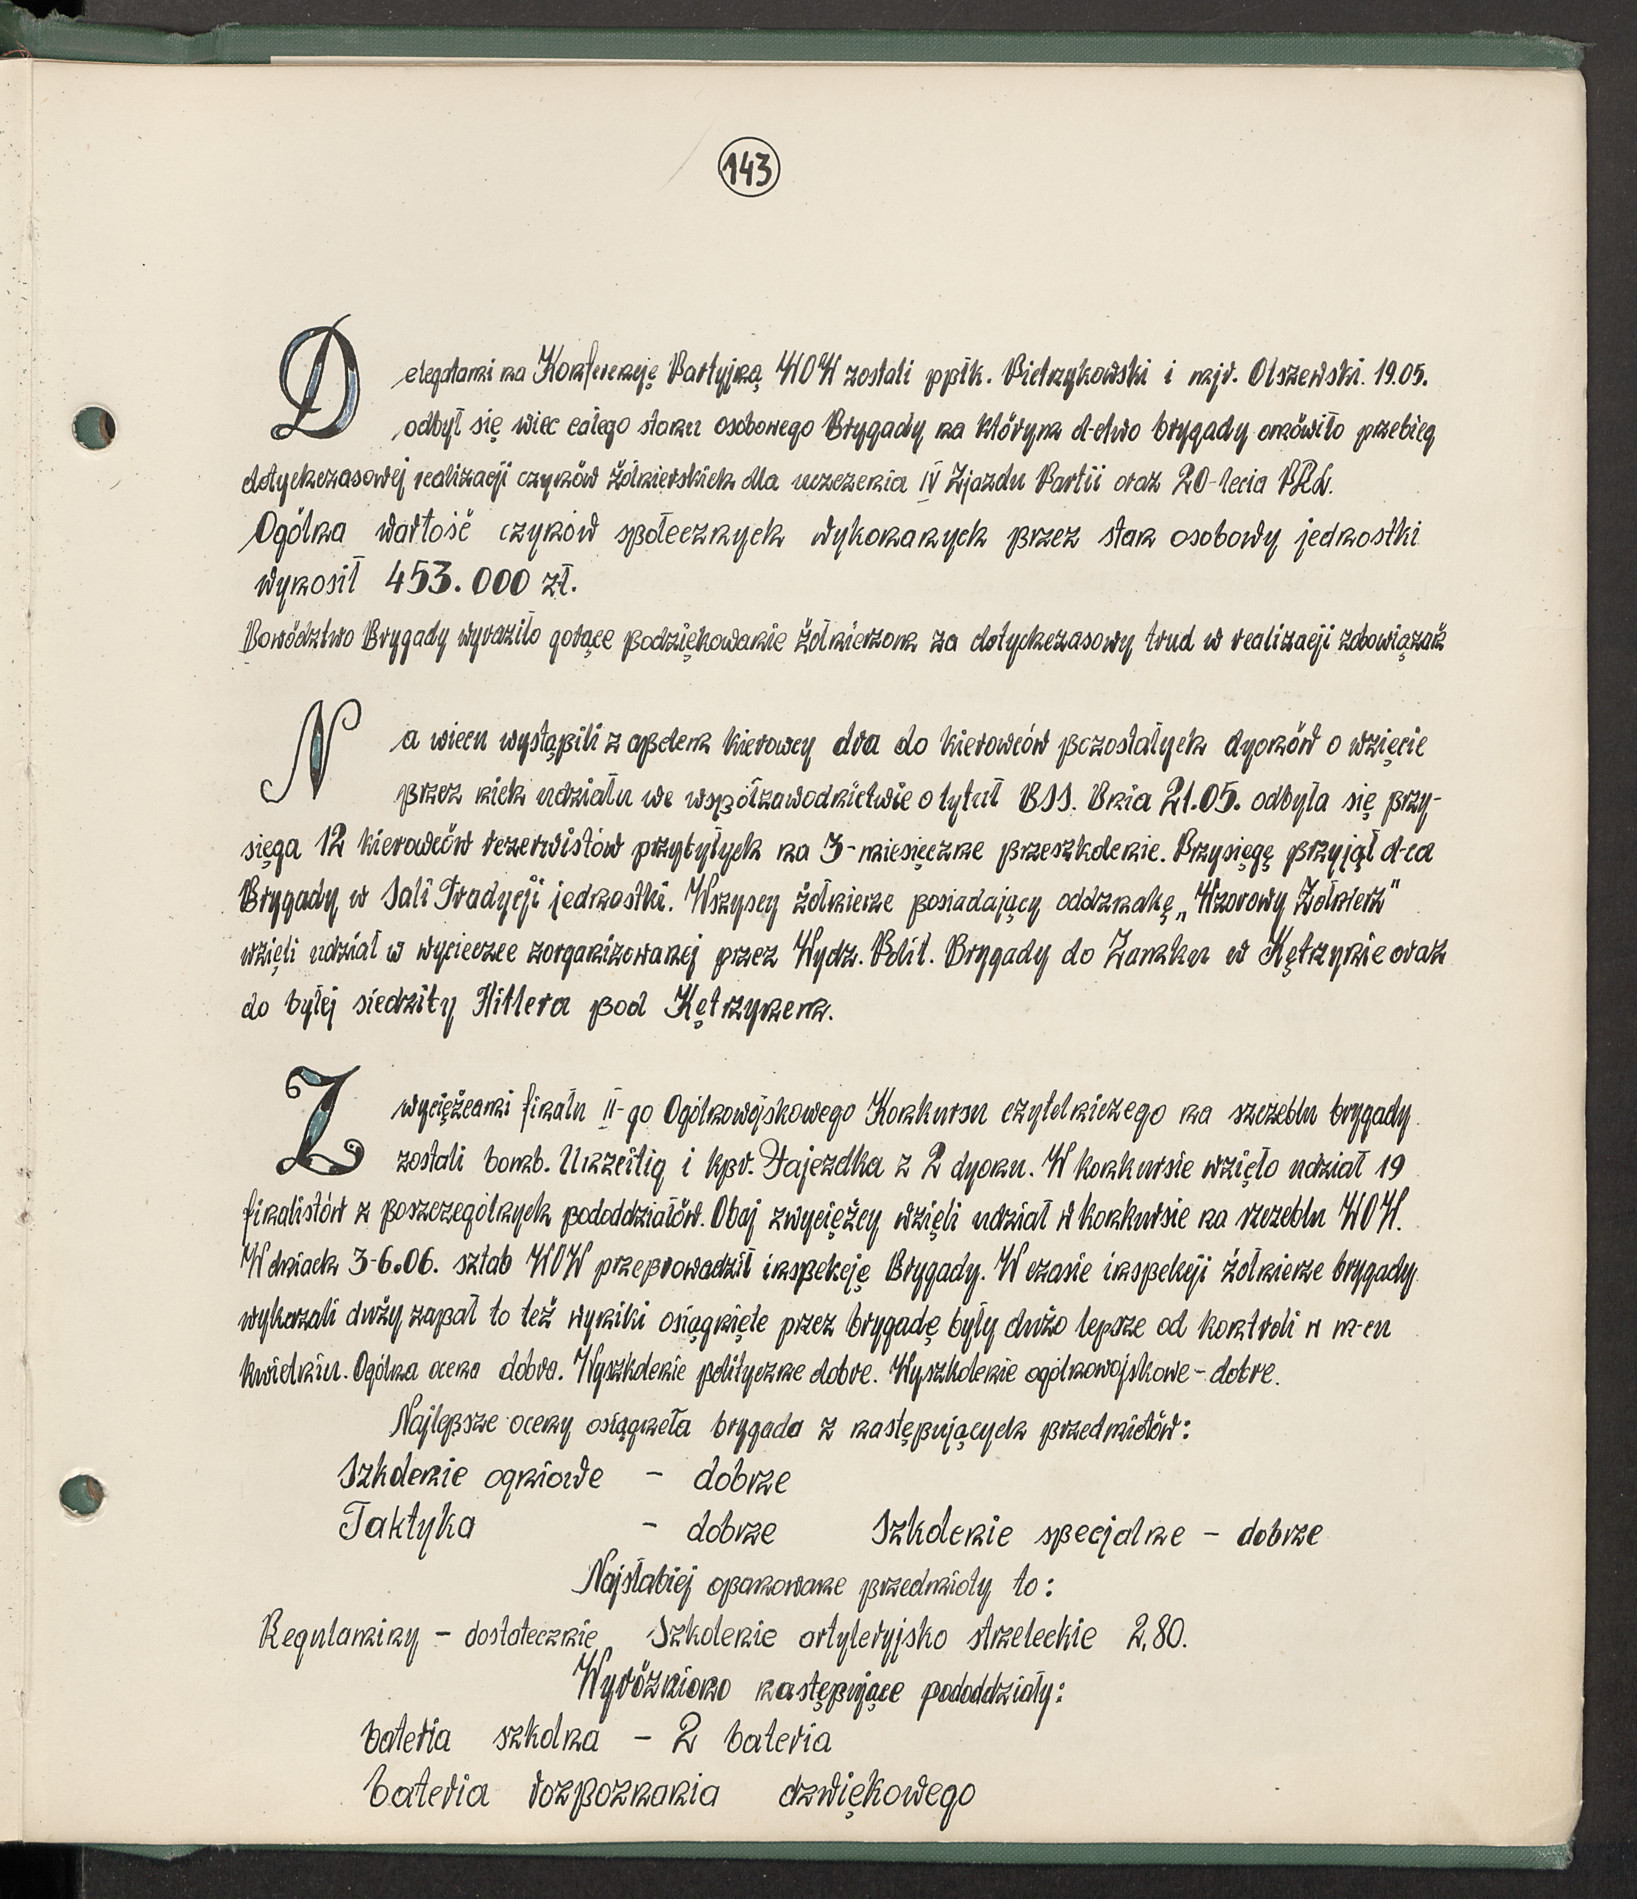 143
Delegatami na Konferencję Partyjną WOW zostali ppłk. Pietrzykowski i mjr. Olszewski. 19.05.
odbył się wiec całego stanu osobowego Brygady na którym d-ctwo brygady omówiło przebieg
dotychczasowej realizacji czynów żołnierskich dla uczczenia IV Zjazdu Partii oraz 20-lecia PRL.
Ogólna wartość czynów społecznych wykonanych przez stan osobowy jednostki
wynosił 453.000 zł.
Dowództwo Brygady wyraziło gorące podziękowanie żołnierzom za dotychczasowy trud w realizacji zobowiązań
Na wiecu wystąpili z apelem kierowcy dra do kierowców pozostałych dyonów o wzięcie
przez nich udziału we współzawodnictwie o tytuł DSS. Dnia 21.05. odbyła się przy-
sięga 12 kierowców rezerwistów przybyłych na 3-miesięczne przeszkolenie. Przysięgę przyjął d-ca
Brygady w Sali Tradycji jednostki. Wszyscy żołnierze posiadający oddznakę „Wzorowy Żołnierz"
wzięli udział w wycieczce zorganizowanej przez Wydz. Polit. Brygady do Zamku w Kętrzynie oraz
do byłej siedziby Hitlera pod Kętrzynem.
Zwyciężcami finału II-go Ogólnowojskowego Konkursu czytelniczego na szczeblu brygady
zostali bomb. Unzeitig i kpr. Fajezdka z 2 dyonu. W konkursie wzięło udział 19
finalistów z poszczególnych pododdziałów. Obaj zwyciężcy wzięli udział w konkursie na szczeblu WOW.
W dniach 3-6.06. sztab WOW przeprowadził inspekcję Brygady. W czasie inspekcji żołnierze brygady
wykazali duży zapał to też wyniki osiągnięte przez brygadę były dużo lepsze od kontroli w m-cu
kwietniu. Ogólna ocena dobra. Wyszkolenie polityczne dobre. Wyszkolenie ogólnowojskowe - dobre.
Najlepsze oceny osiągneła brygada z następujących przedmiotów:
Szkolenie ogniowe - dobrze
Taktyka - dobrze Szkolenie specjalne - dobrze
Najsłabiej opanowane przedmioty to:
Regulaminy - dostatecznie Szkolenie artyleryjsko strzeleckie 2,80.
Wyróżniono następujące pododdziały:
bateria szkolna - 2 bateria
bateria rozpoznania dzwiękowego